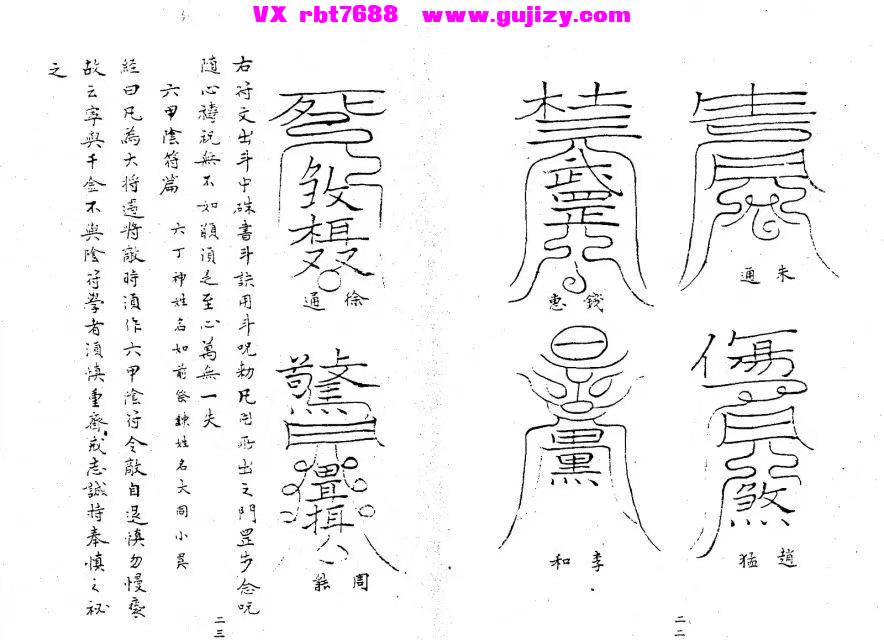 VX rbt7688 www.gujizy.com
朱通
錢惠
趙猛
李和
二二
徐通
周熊
右符文出斗中硃書斗訣用斗呪勅凡用所出之門罡步念呪
隨心禱祝無不如願須是至心萬無一失
六甲陰符篇
六丁神姓名如前祭鍊姓名大同小異
經曰凡為大將遇將敵時須作六甲陰符令敵自退慎勿慢褻
故云寧與千金不與陰符學者須慎重齋戒志誠持奉慎之秘
之
二三